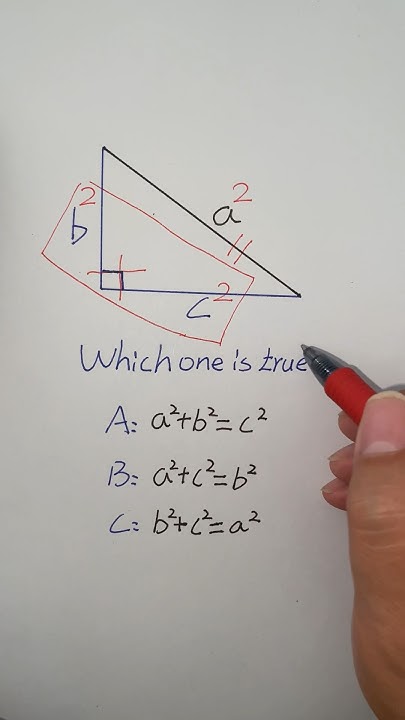 a²
b²
c²
Which one is true
A: a²+b²=c²
B: a²+c²=b²
C: b²+c²=a²